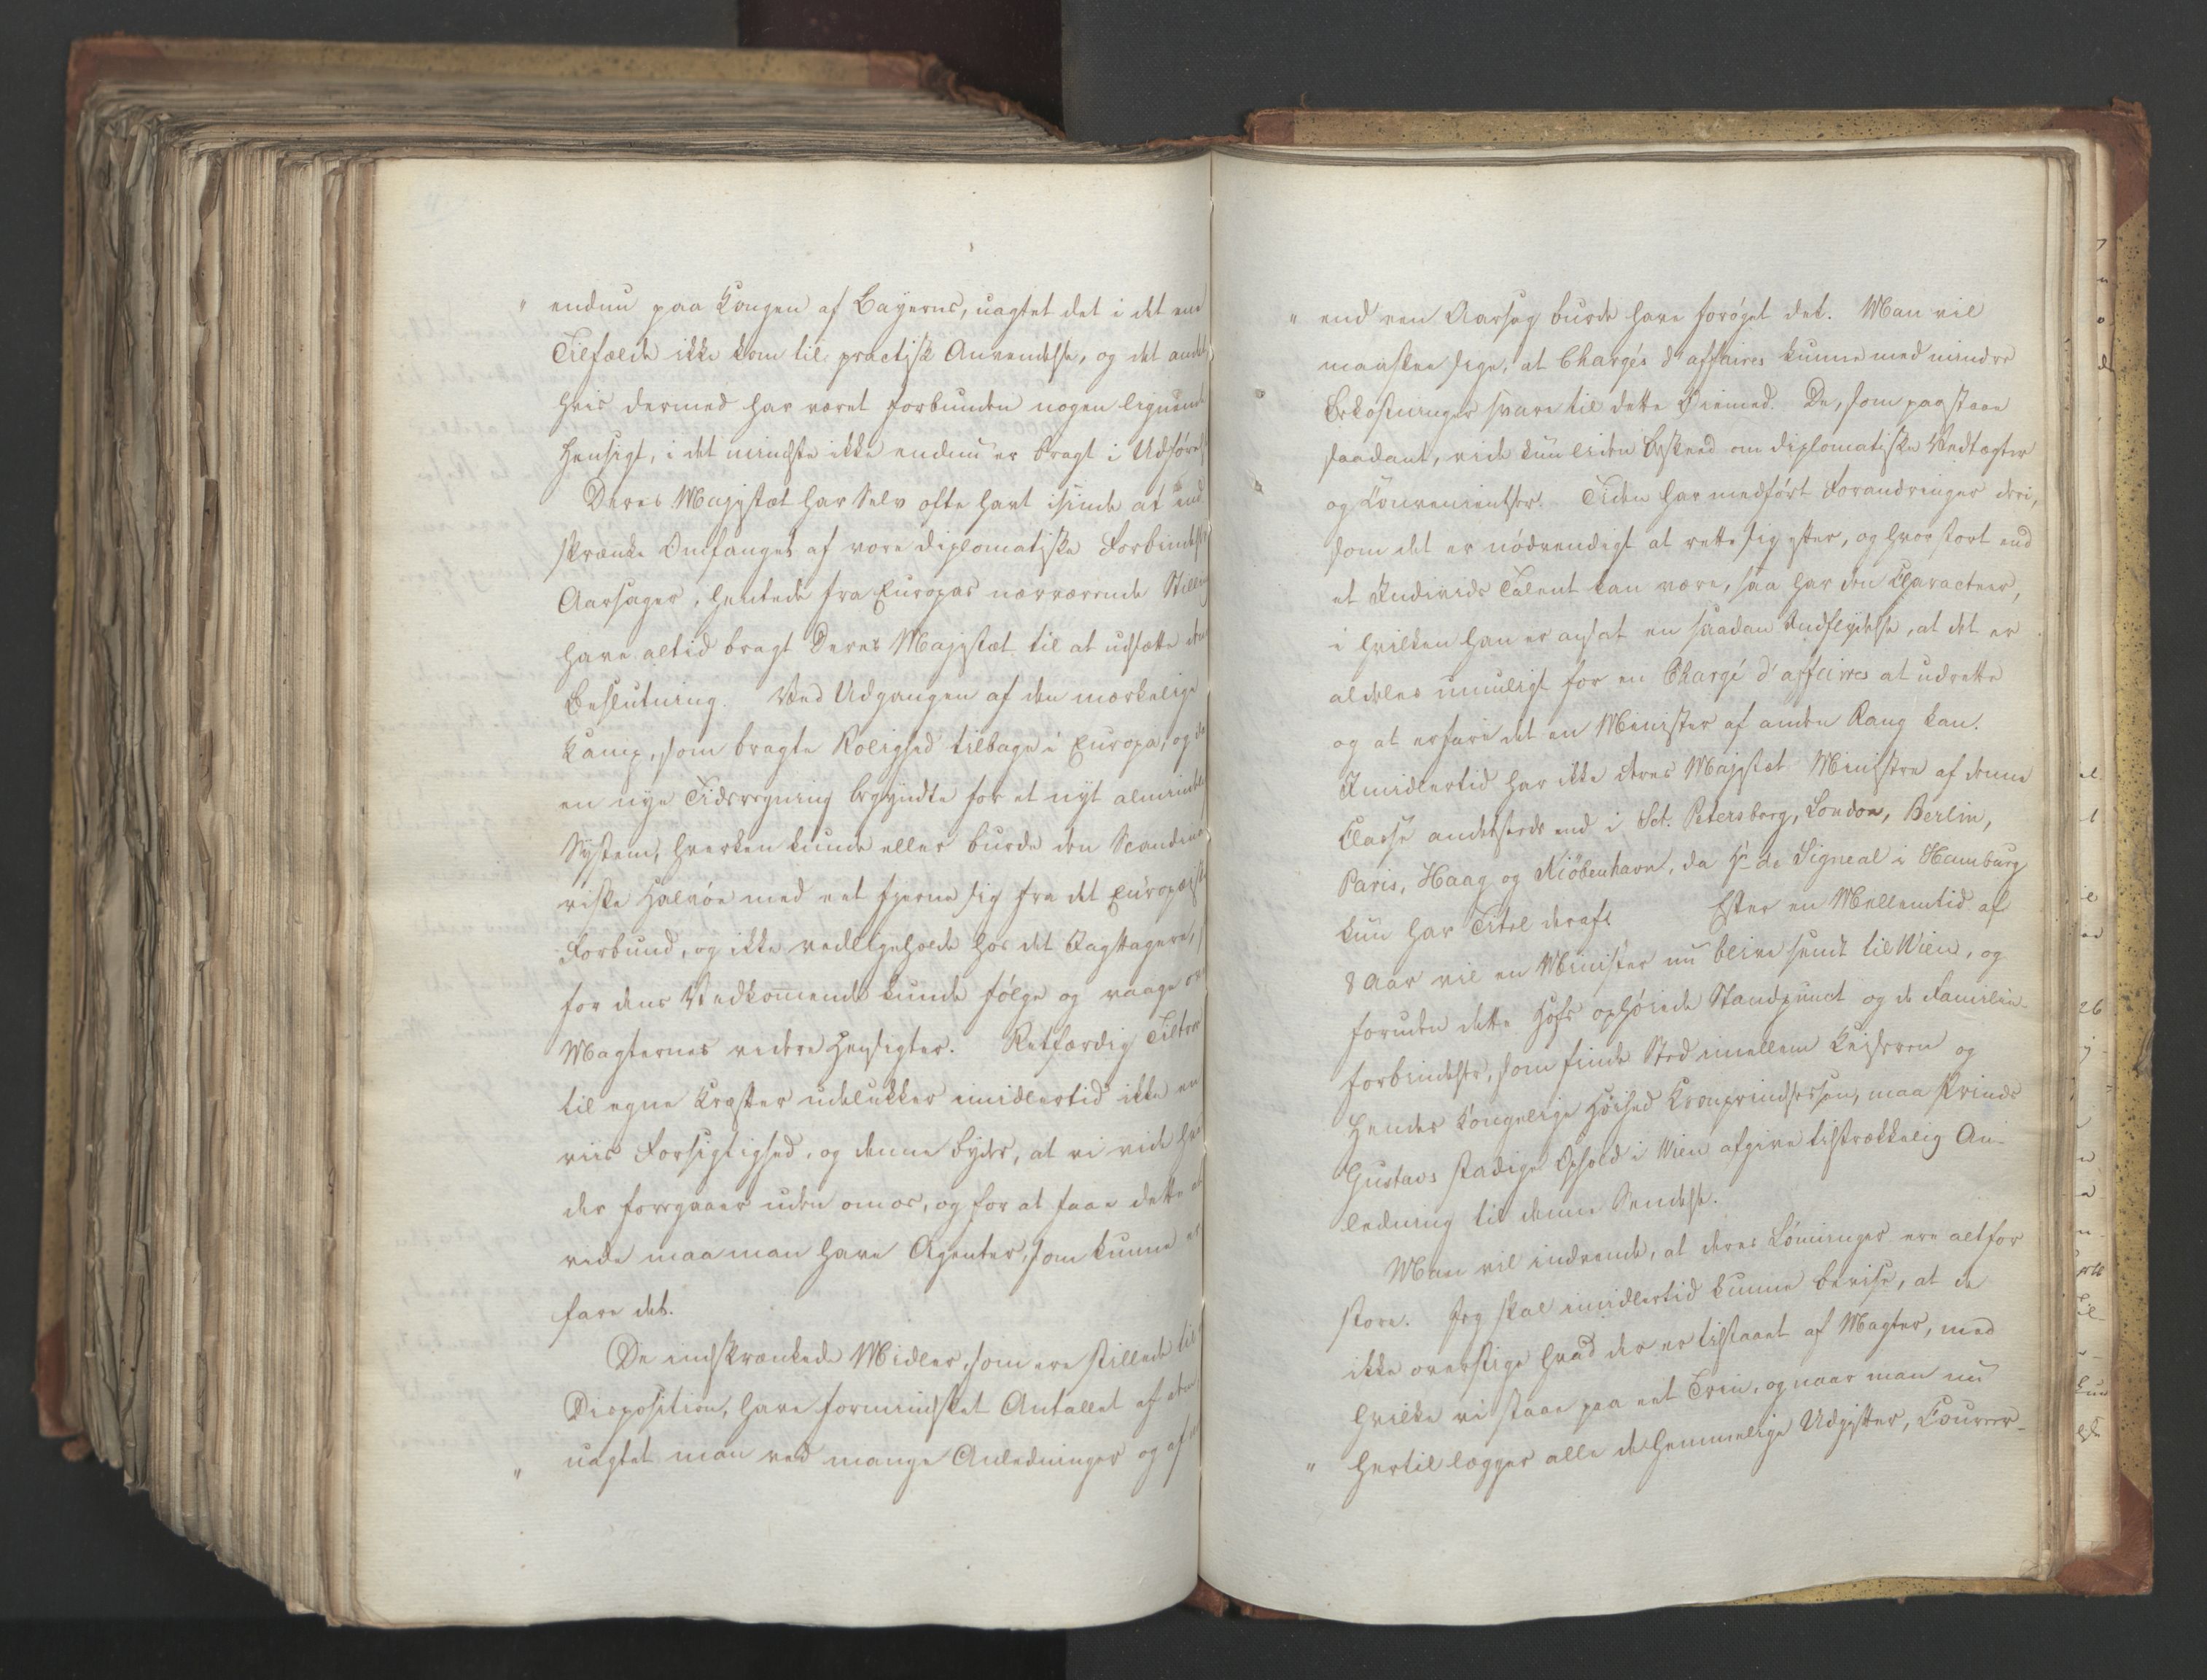 " endnu paa Kongen af Bayerns, uagtet det i det ene
Tilfælde ikke kom til practisk Anvendelse, og det andet,
hvis dermed har været forbunden nogen lignende
Hensigt, i det mindste ikke endnu er bragt i Udførelse
Deres Majestæt har Selv ofte havt isinde at ind
skrænke Omfanget af vore diplomatiske Forbindelser
Aarsager, hentede fra Europas nærværende Stilling
have altid bragt Deres Majestæt til at udsætte denne
Beslutning. Ved Udgangen af den mærkelige
Kamp, som bragte Rolighed tilbage i Europa, og da
en nye Tidsregning begyndte for et nyt almindeligt
System, hverken kunde eller burde den Scandina
viske Halvöe med eet fjerne sig fra det Europæiske
Forbund, og ikke vedligeholde hos det Iagttagere,
for dens Vedkommende kunde følge og vaage over
Magternes videre Hensigter. Retfærdig Tiltroe
til egne Kræfter udelukker imidlertid ikke en
viis Forsigtighed, og denne byder, at vi vide hvad
der foregaaer uden om os, og for at faae dette at
vide maa man have Agenter, som kunne er
fare det.
De indskrænkede Midler, som ere stillede til
Disposition, have formindsket Antallet af dem
" uagtet man ved mange Anledninger og af
" end een Aarsag burde have forøget det. Man vil
maaskee sige, at Chargés d'affaires kunne med mindre
Bekostninger svare til dette Øiemed. De, som paastaae
saadant, vide kun liden Beskeed om diplomatiske Vedtægter
og Convenientser. Tiden har medført Forandringer deri,
som det er nødvendigt at rette sig efter, og hvor stort end
et Individs Talent kan være, saa har den Characteer,
i hvilken han er ansat en saadan Indflydelse, at det er
aldeles umuligt for en Chargé d'affaires at udrette
og at erfare det en Minister af anden Rang kan.
Imidlertid har ikke Deres Majestæt Ministre af denne
Classe andetsteds end i Sct. Petersborg, London, Berlin,
Paris, Haag og Kiöbenhavn, da Hr de Signeul i Hamburg
kun har Titel deraf. Efter en Mellemtid af
8 Aar vil en Minister nu blive sendt til Wien, og
foruden dette Hofs ophøiede Standpunct og de Familie-
forbindelser, som finde Sted imellem Keiseren og
Hendes Kongelige Høihed Kronprindsessen, maa Prinds
Gustavs stadige Ophold i Wien afgive tilstrækkelig An-
ledning til denne Sendelse.
Man vil indvende, at deres Lønninger ere altfor
store. Jeg skal imidlertid kunne bevise, at de
ikke overstige hvad der er tilstaaet af Magter, med
hvilke vi staae paa eet Trin, og naar man nu
" hertil lægger alle de hemmelige Udgifter, Coureer-